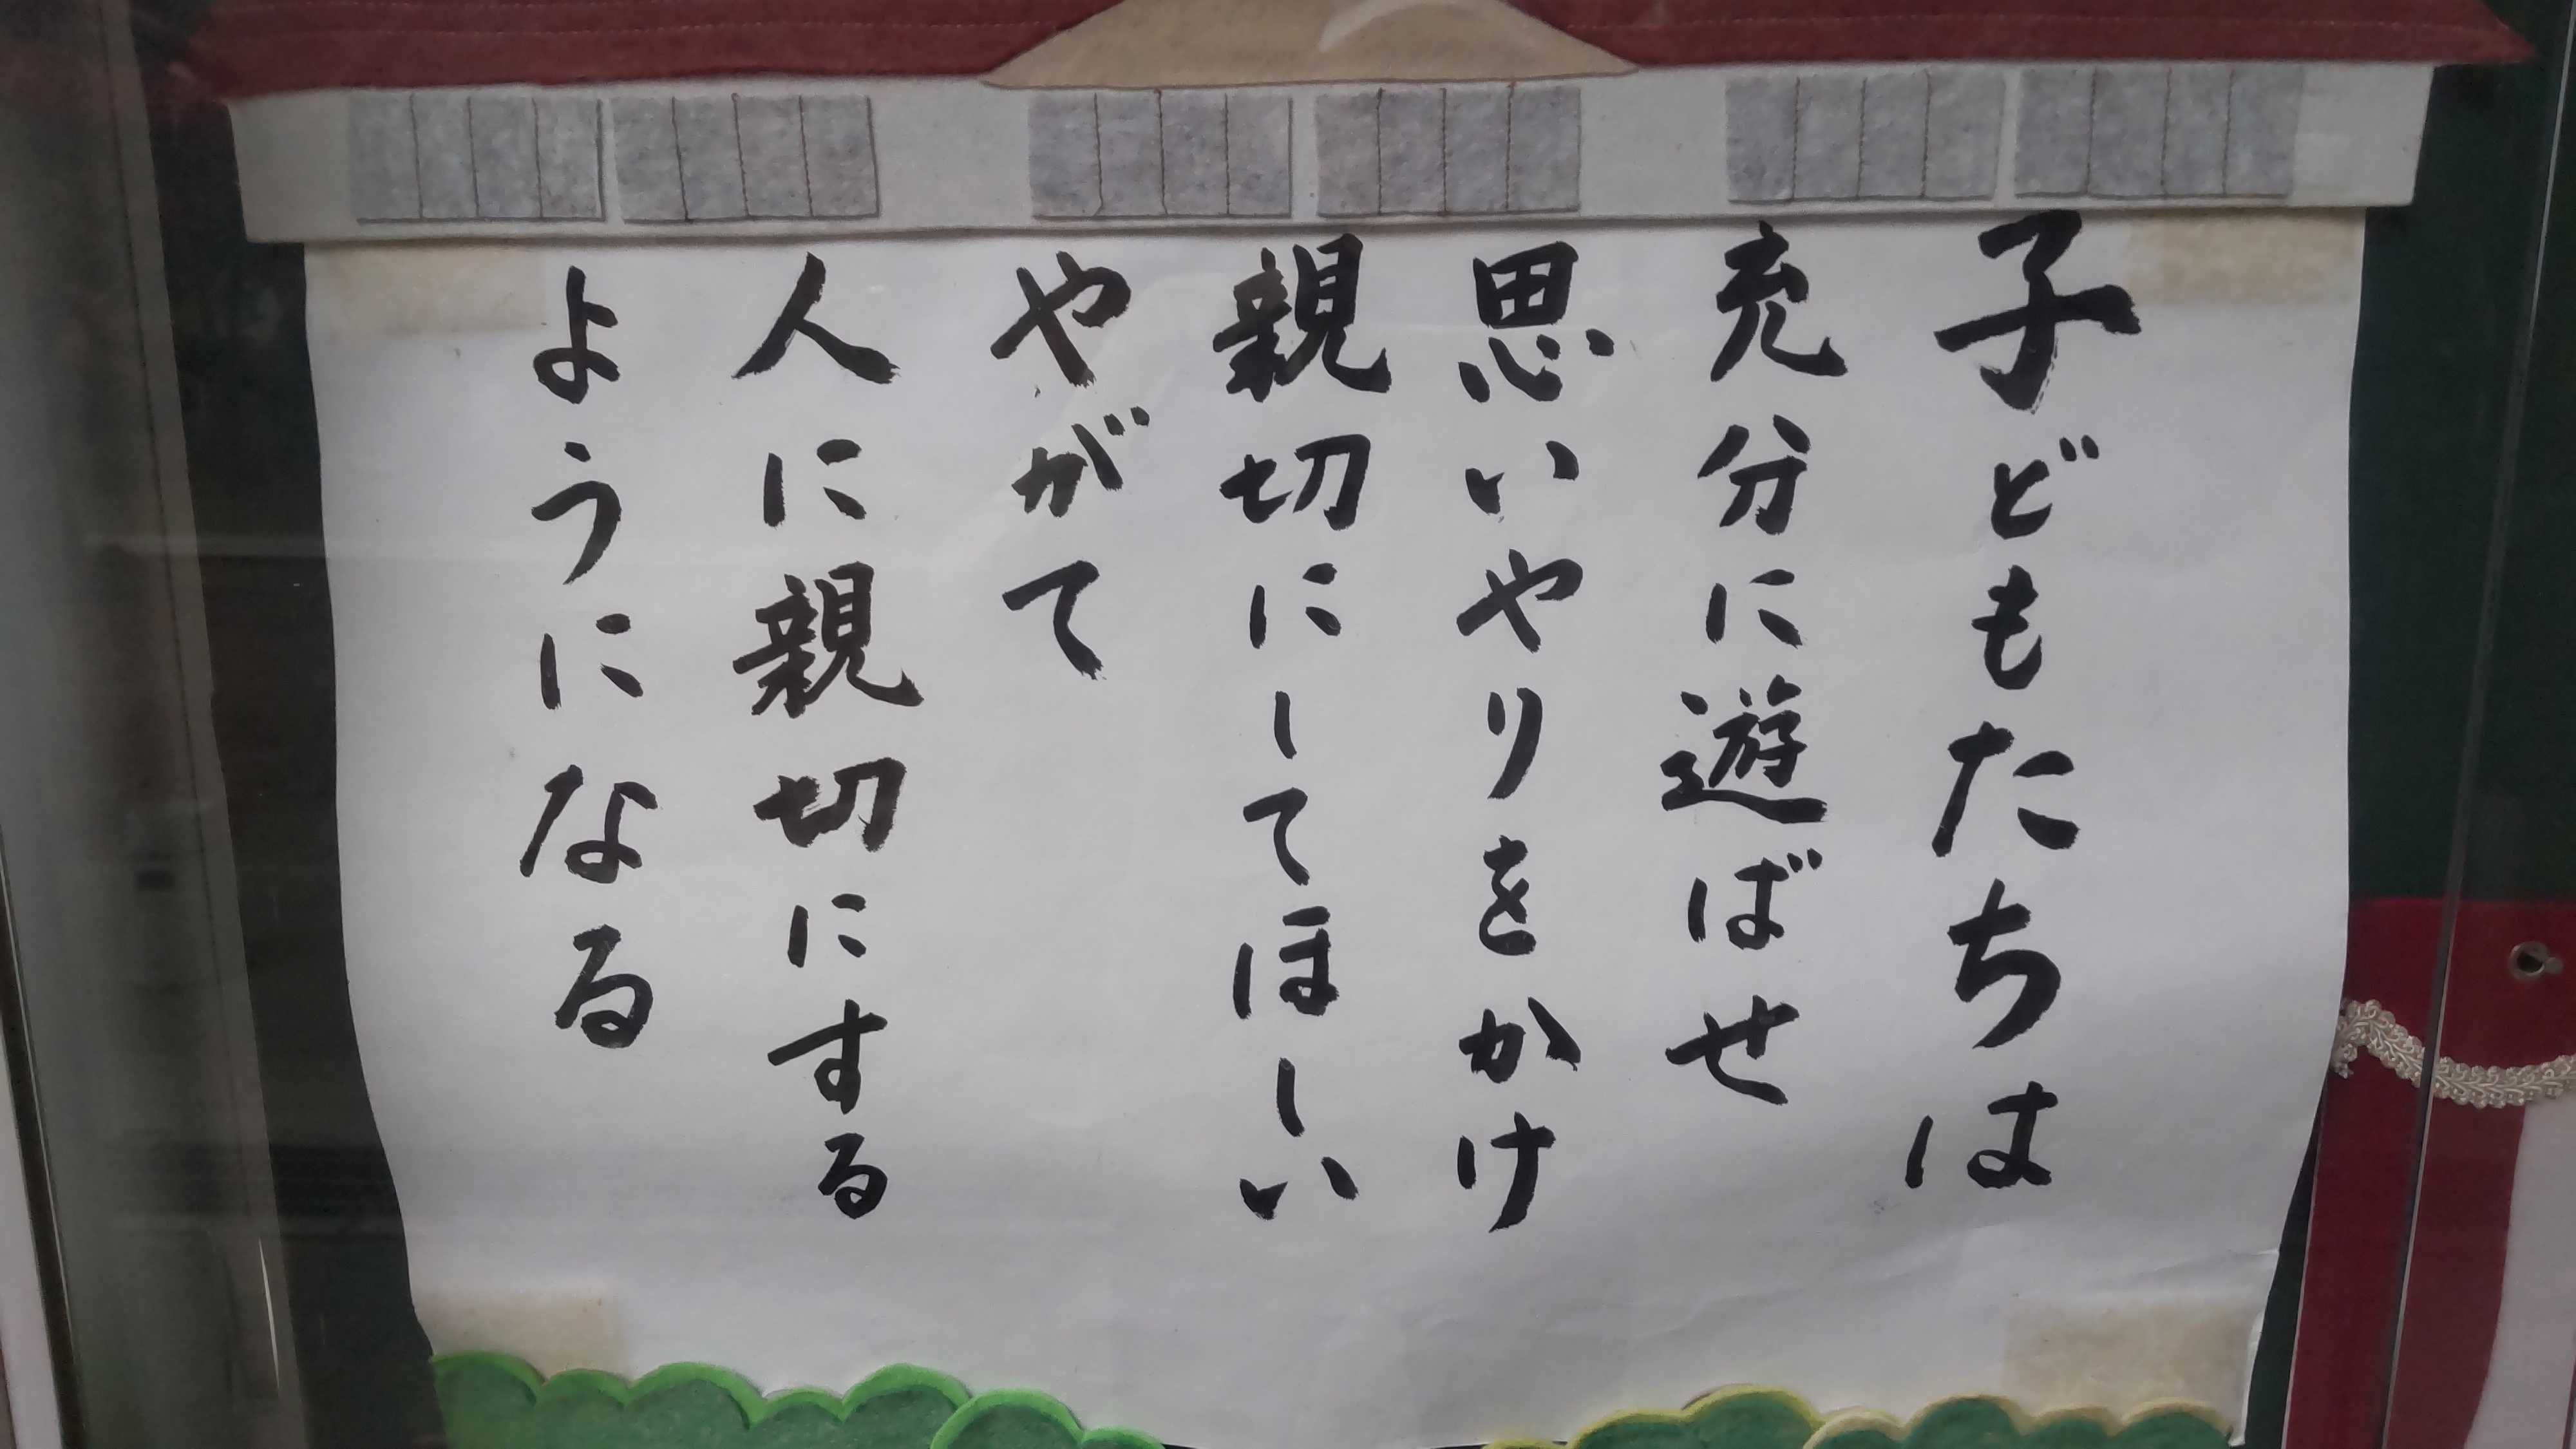 子どもたちは
充分に遊ばせ
思いやりをかけ
親切にしてほしい
やがて
人に親切にする
ようになる